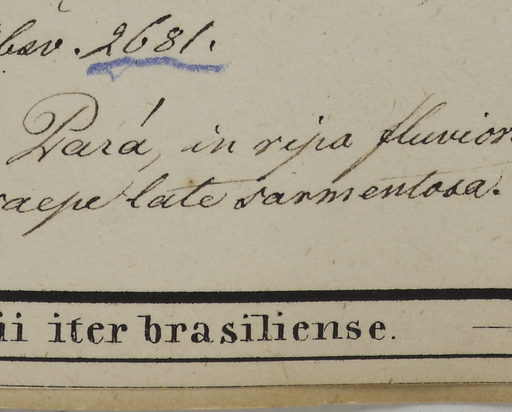 bsv. 2681.
Pará, in ripa fluvior
saepe late sarmentosa.
ii iter brasiliense.